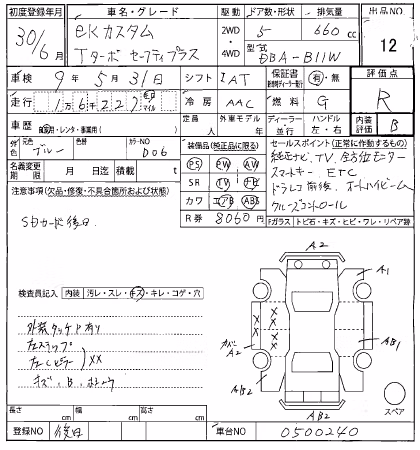 初度登録年月 車名・グレード 駆動 ドア数・形状 排気量 出品NO
30/6月 eKカスタム 2WD 4WD 5 660cc 12
Tターボ セーフティプラス 型式 DBA-B11W
車検 9年5月31日 シフト IAT 保証書 有・無 評価点
走行 16227 km マイル 冷房 AAC 燃料 G R
車歴 自家用・レンタ・事業用( ) 乗車定員 人 外車モデル 年 ディーラー 並行 ハンドル 左・右 内装 B
外色 元色 ブルー 色 カラーNO D06
装備品(純正品に限る)
PS PW AW
SR TV ナビ
カワ エアB ABS
R券 8060円
セールスポイント(正常に作動するもの)
純正ナビ、TV、全方位モニター
スマートキー ETC
ドラレコ前後、オートハイビーム
クルーズコントロール
名義変更期限 月 日迄 積載量 t
Fガラス トビ石・キズ・ヒビ・ワレ・リペア跡
注意事項(欠品・修復・不具合箇所および状態)
SDカード後日
検査員記入 内装 汚レ・スレ・キズ・キレ・コゲ・穴
外装タッチP有り
左ステップ
左Cピラー XX
キズ、B
A2
A1
カバーA2
AB1
AB2
AB2
スペア
長さ cm 幅 cm 高さ cm
登録NO 後日 車台NO 0500240